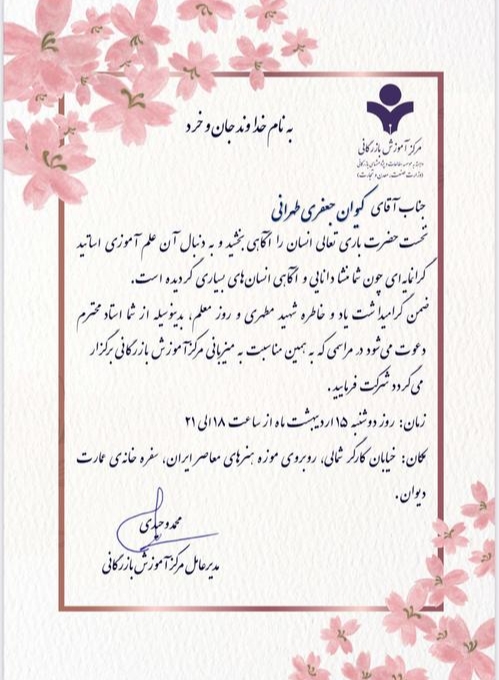 به نام خداوند جان و خرد
مرکز آموزش بازرگانی
وابسته به موسسه مطالعات و پژوهشهای بازرگانی
(وزارت صنعت، معدن و تجارت)
جناب آقای کیوان جعفری طهرانی
نخست حضرت باری تعالی انسان را آگاهی بخشید و به دنبال آن علم آموزی اساتید
گرانمایه‌ای چون شما منشا دانایی و آگاهی انسان‌های بسیاری گردیده است.
ضمن گرامیداشت یاد و خاطره شهید مطهری و روز معلم، بدینوسیله از شما استاد محترم
دعوت می‌شود در مراسمی که به همین مناسبت به میزبانی مرکز آموزش بازرگانی برگزار
می‌گردد شرکت فرمایید.
زمان: روز دوشنبه ۱۵ اردیبهشت ماه از ساعت ۱۸ الی ۲۱
مکان: خیابان کارگر شمالی، روبروی موزه هنرهای معاصر ایران، سفره خانه‌ی عمارت
دیوان.
محمد وحیدی
مدیرعامل مرکز آموزش بازرگانی